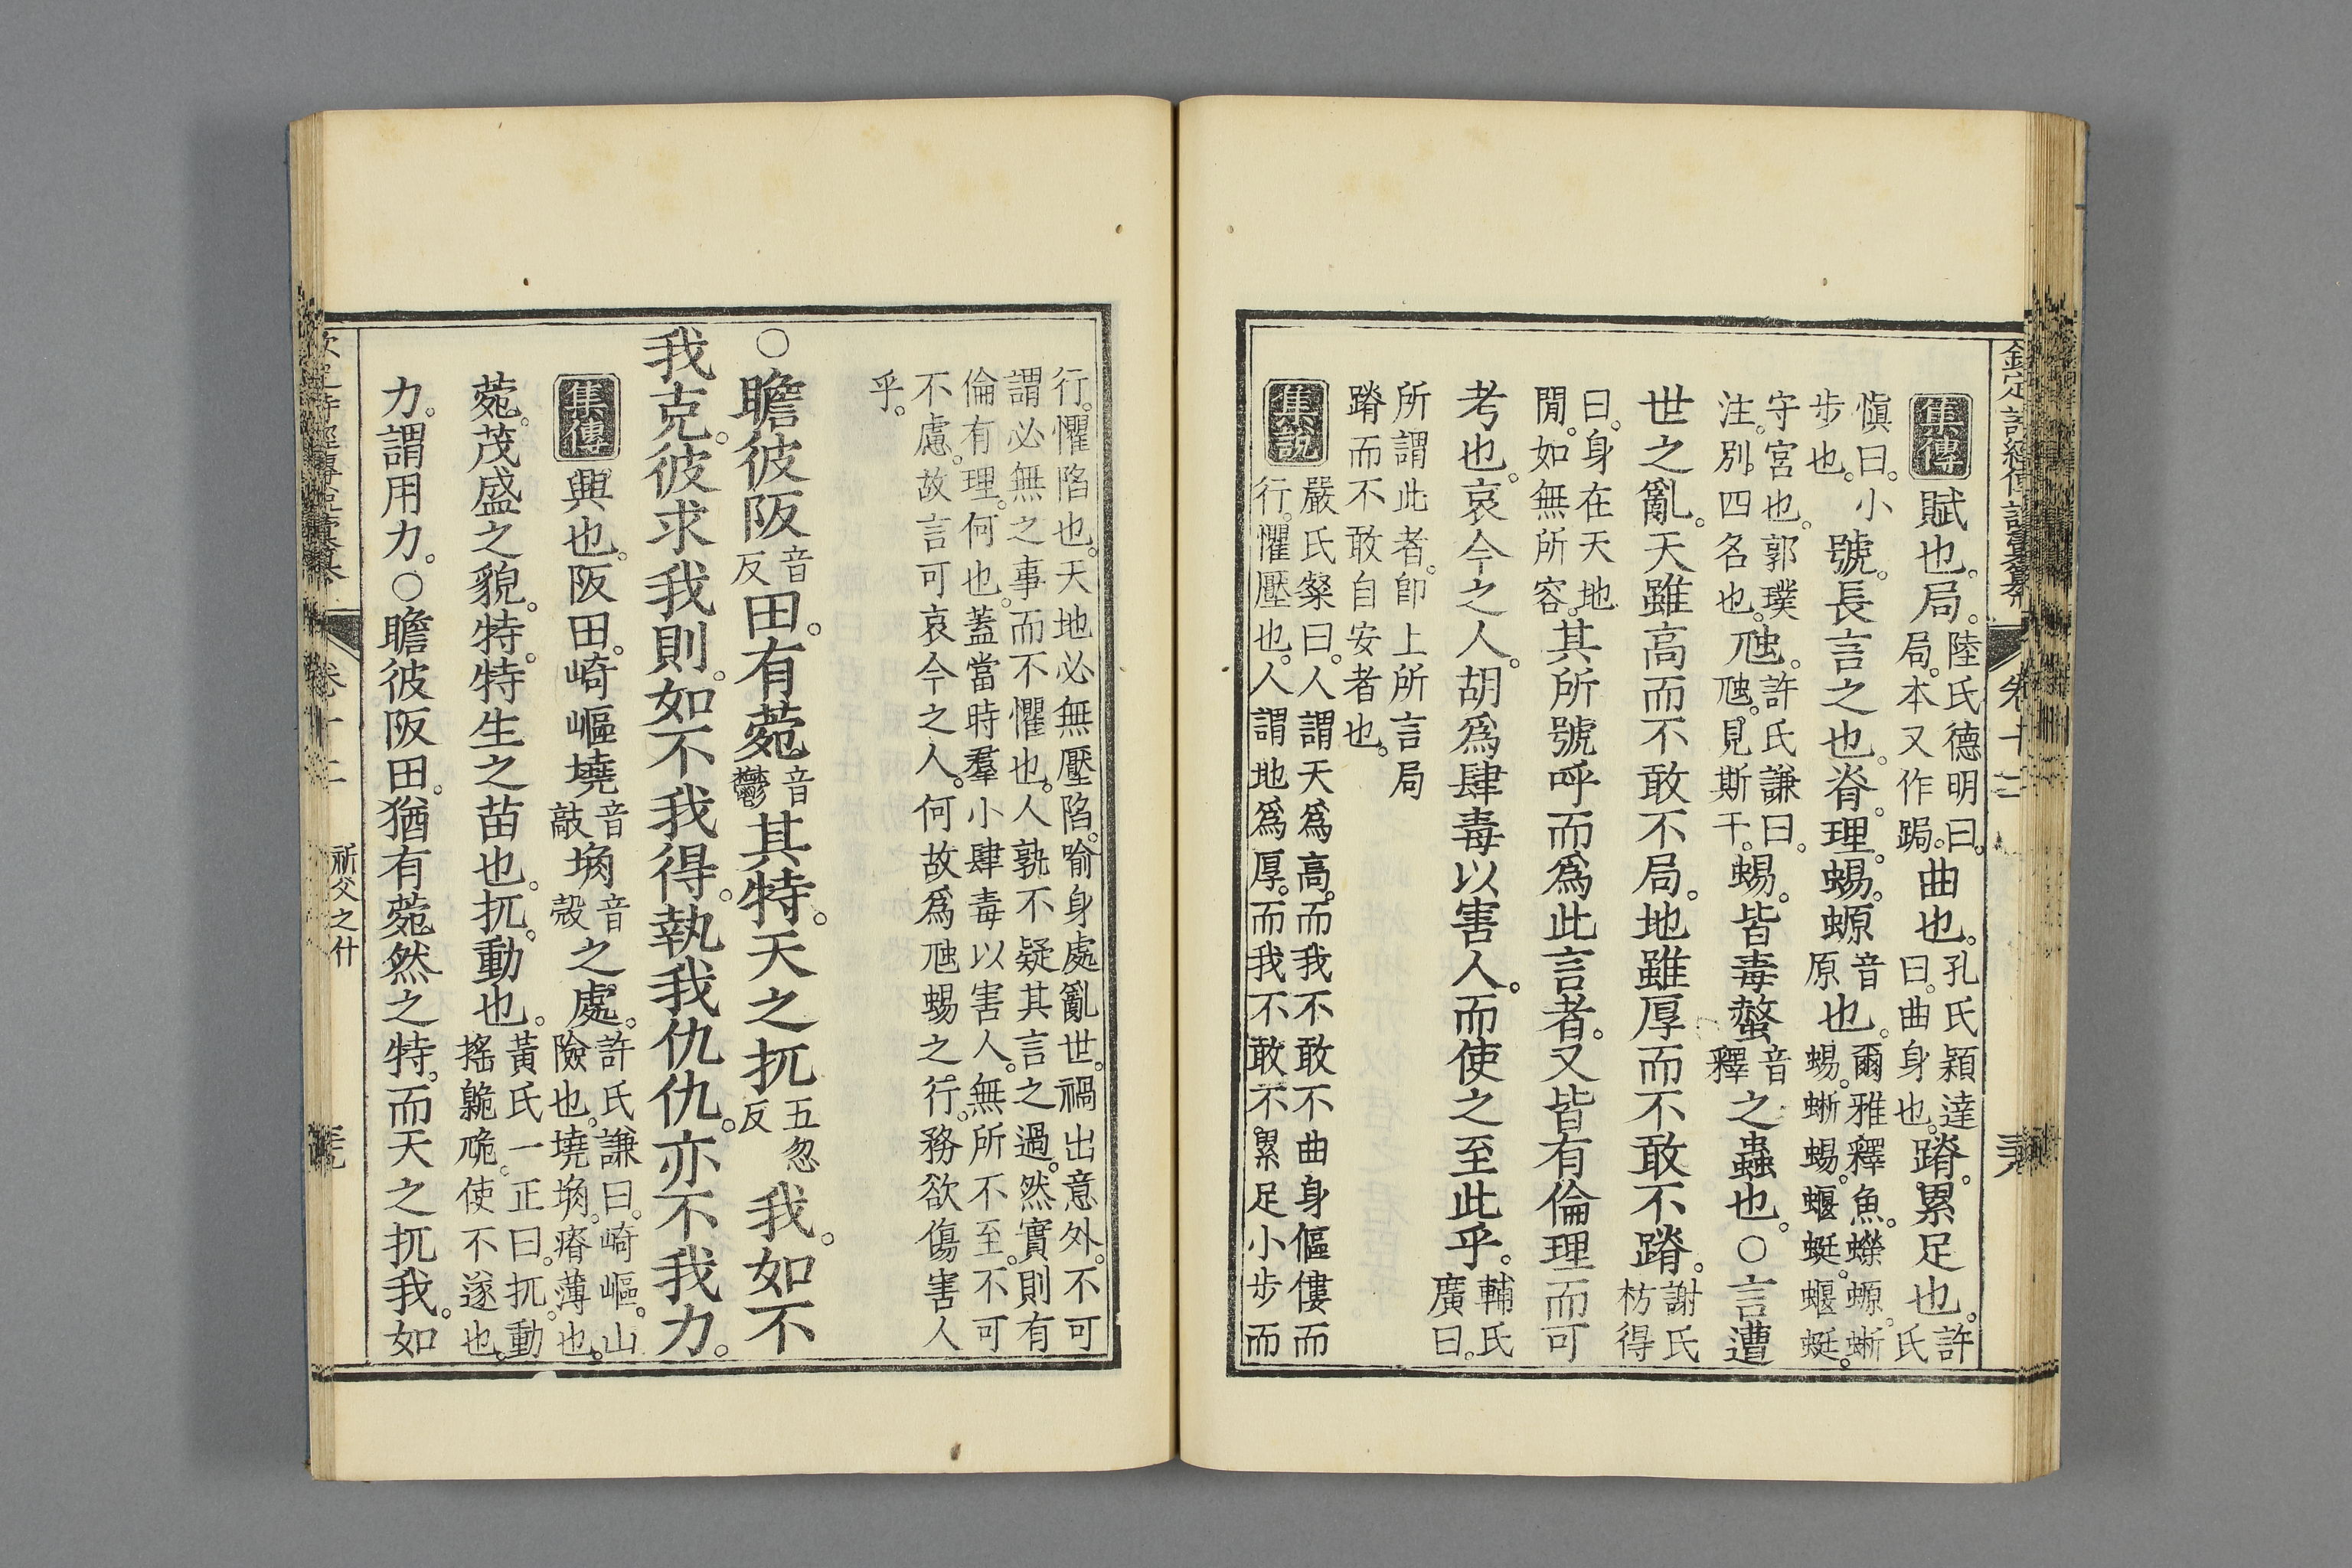 欽定詩經傳說彙纂 卷十二
集傳 賦也。局。陸氏德明曰。局。本又作跼。曲也。孔氏穎達曰。曲身也。蹐。累足也。許氏
愼曰。小步也。號。長言之也。脊。理。蜴。螈音原也。爾雅釋魚。蠑螈。蜥蜴。蜥蜴。蝘蜓。蝘蜓。
守宮也。郭璞注。別四名也。虺。許氏謙曰。虺。見斯干。蜴。皆毒螫音釋之蟲也。○言遭
世之亂。天雖高而不敢不局。地雖厚而不敢不蹐。謝氏枋得
曰。身在天地閒。如無所容。其所號呼而爲此言者。又皆有倫理而可
考也。哀今之人。胡爲肆毒以害人。而使之至此乎。輔氏廣曰。
所謂此者。卽上所言局
蹐而不敢自安者也。
集說 嚴氏粲曰。人謂天爲高。而我不敢不曲身傴僂而
行。懼壓也。人謂地爲厚。而我不敢不累足小步而
行。懼陷也。天地必無壓陷。喻身處亂世。禍出意外。不可
謂必無之事而不懼也。人孰不疑其言之過。然實則有
倫有理。何也。蓋當時羣小肆毒以害人。無所不至。不可
不慮。故言可哀今之人。何故爲虺蜴之行。務欲傷害人
乎。
○瞻彼阪音反田。有菀音鬱其特。天之扤五忽反我。如不
我克。彼求我則。如不我得。執我仇仇。亦不我力。
集傳 興也。阪田。崎嶇墝音敲埆音殼之處。許氏謙曰。崎嶇。山險也。墝埆。瘠薄也。
菀。茂盛之貌。特。特生之苗也。扤。動也。黃氏一正曰。扤。動搖臲卼。使不遂也。
力。謂用力。○瞻彼阪田。猶有菀然之特。而天之扤我。如
欽定詩經傳說彙纂 卷十二 祈父之什